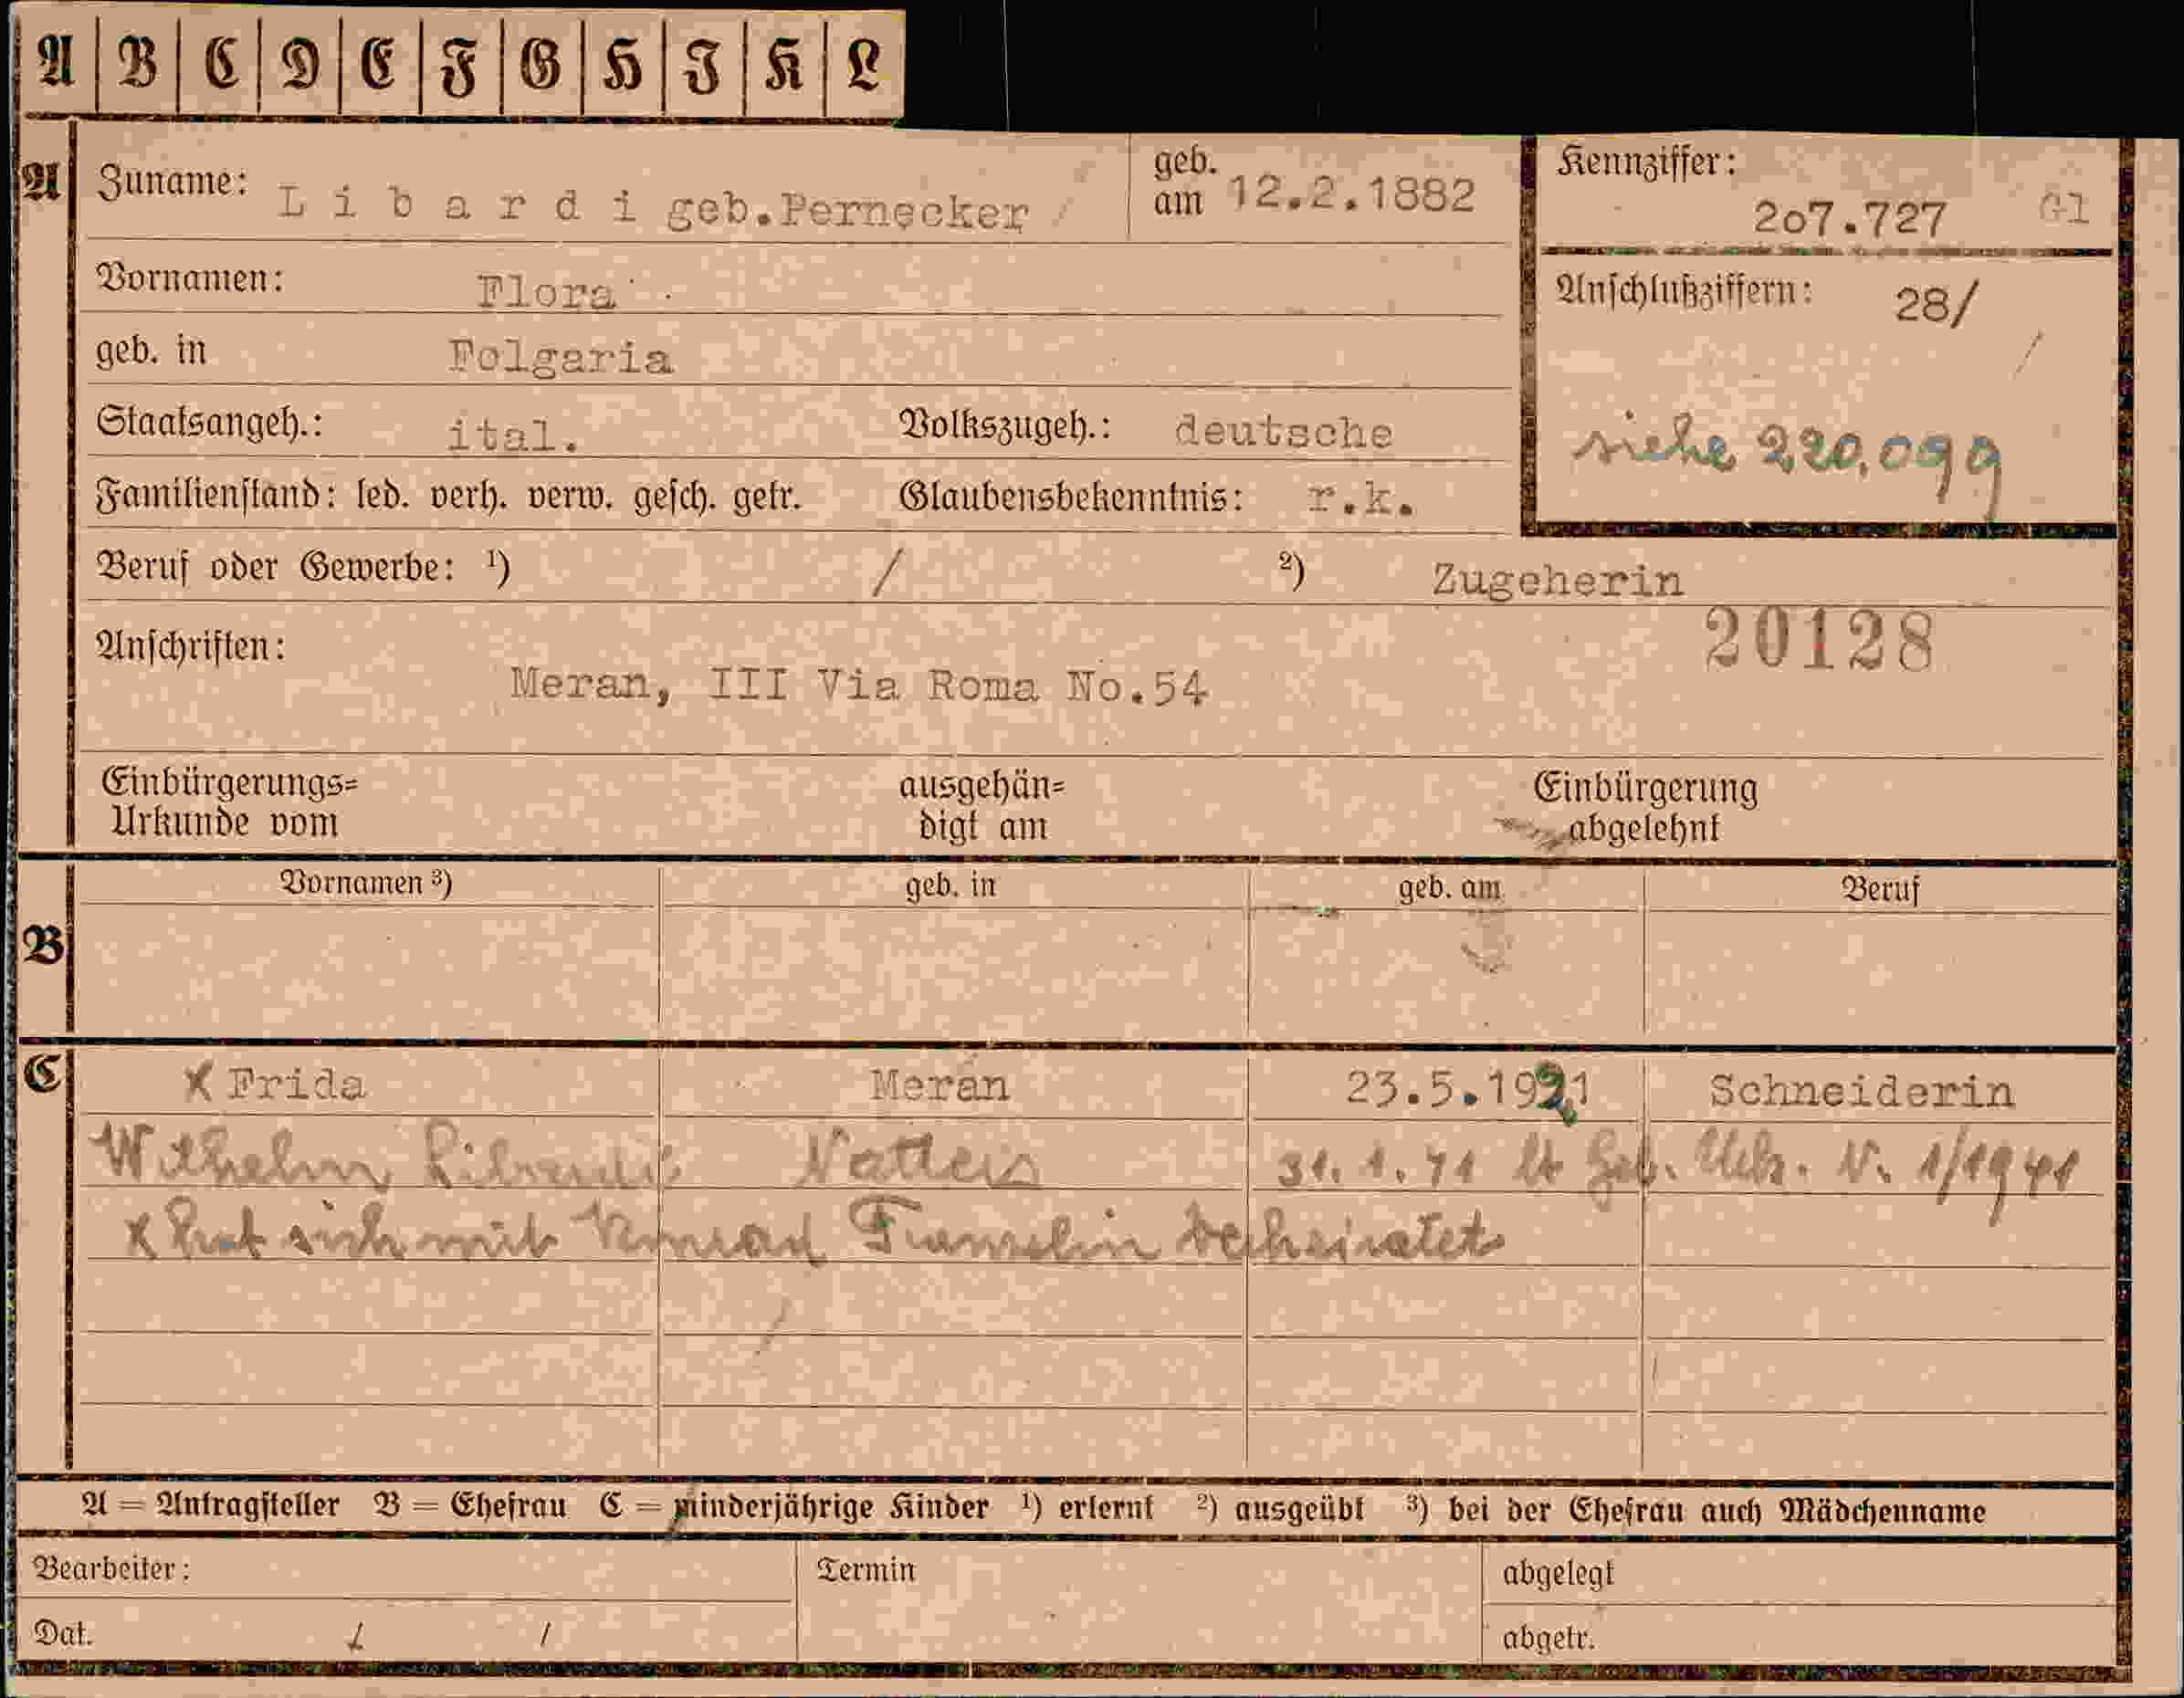 A B C D E F G H I K L
A Zuname: Libardi geb.Pernecker geb. am 12.2.1882 Kennziffer: 207.727 Gl
Vornamen: Flora Anschlußziffern: 28/
geb. in Folgaria
Staatsangeh.: ital. Volkszugeh.: deutsche siehe 220,099
Familienstand: led. verh. verw. gesch. getr. Glaubensbekenntnis: r.k.
Beruf oder Gewerbe: ¹) / ²) Zugeherin
20128
Anschriften:
Meran, III Via Roma No.54
Einbürgerungs= ausgehän= Einbürgerung
Urkunde vom digt am abgelehnt
Vornamen ³) geb. in geb. am Beruf
B
C x Frida Meran 23.5.1921 Schneiderin
Wilhelm Libardi Natters 31.1.41 lt Geb. Urk. N. 1/1941
x hat sich mit Konrad verheiratet
A = Antragsteller B = Ehefrau C = minderjährige Kinder ¹) erlernt ²) ausgeübt ³) bei der Ehefrau auch Mädchenname
Bearbeiter: Termin abgelegt
Dat. / / abgetr.